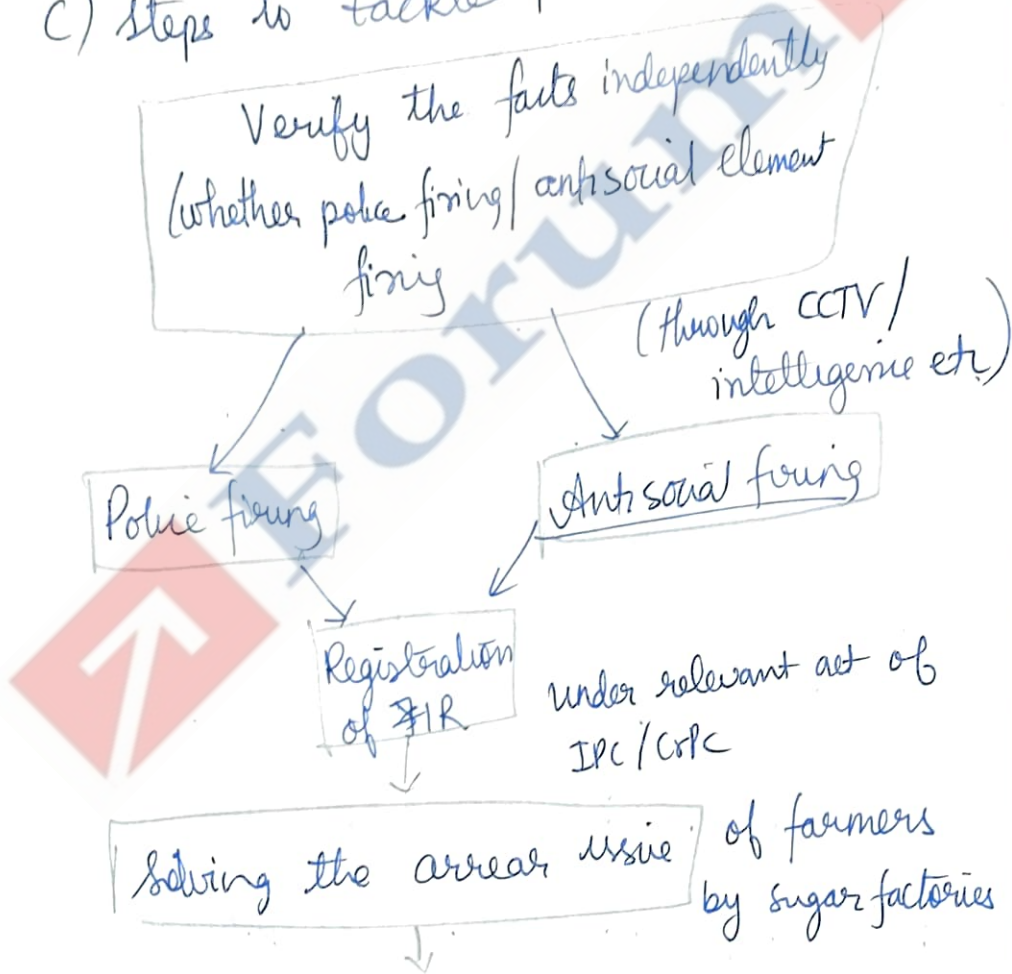 C) Steps to tackle
Verify the facts independently
(whether police firing/ antisocial element
firing
(through CCTV/
intelligence etc)
Police firing
Antisocial firing
Registration
of FIR
under relevant act of
IPC/CrPC
Solving the arrear issue
of farmers
by sugar factories
Forum